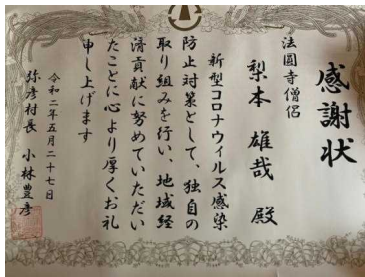 感謝状
法圓寺僧侶
梨本雄哉 殿
新型コロナウィルス感染
防止対策として、独自の
取り組みを行い、地域経
済貢献に努めていただい
たことに心より厚くお礼
申し上げます
令和二年五月二十七日
弥彦村長 小林豊彦